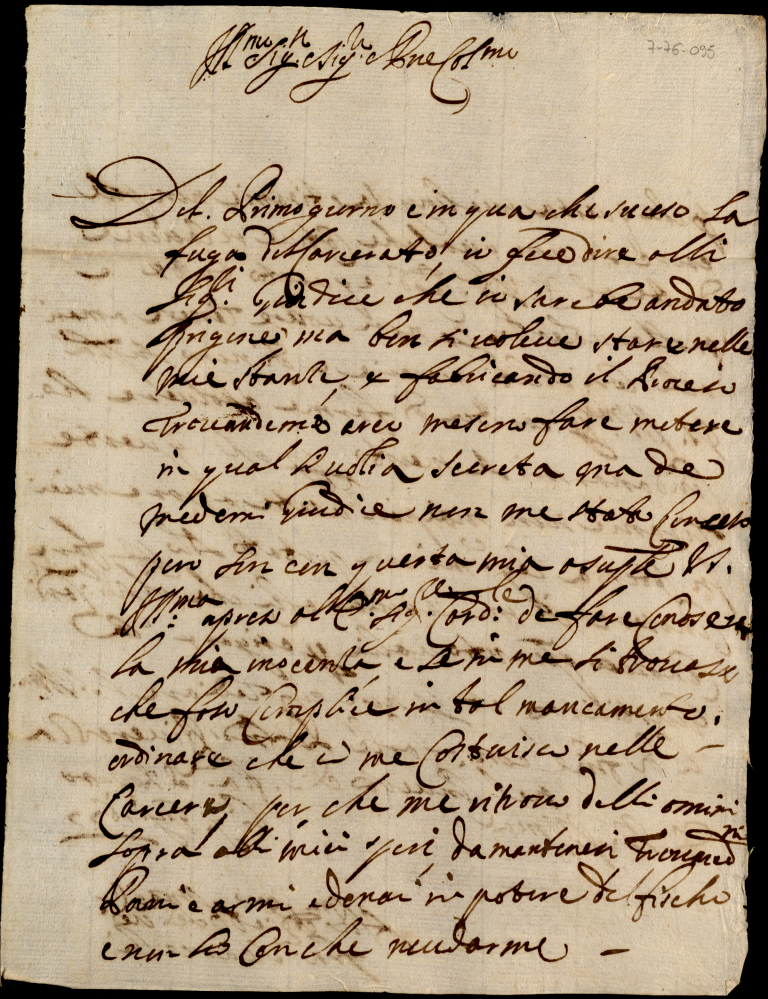 7-76-095
Ill.mo Sig.r e Sig.r e Pne Col.mo
Dal. Primo giorno e in qua che suceso La
fuga del Carcerato, io fece dire alli
Sig.li Giudice che io sarebe andato
Prigione, ma ben si voleve stare nelle
mie stantie, e fabricando il Proceso
Trovandome areo me senso fare metere
in qual Publia secreta ma da
medemi Giudice non me stato Conceso
pero son con questa mia a suplle VS.
Ill.ma apreso all Em. Sig.re Card.le de fare Conoscere
la mia inocentia, e se in me si trovase
che foso Complice in tal mancamento.
ordinare che io me Costuisca nelle –
Carcere, per che me ritrovo delli omini
sopra alli miei spesi, da manteneri
Pani e armi e denari in potere del fischo
e non ho Con che aiudarme –